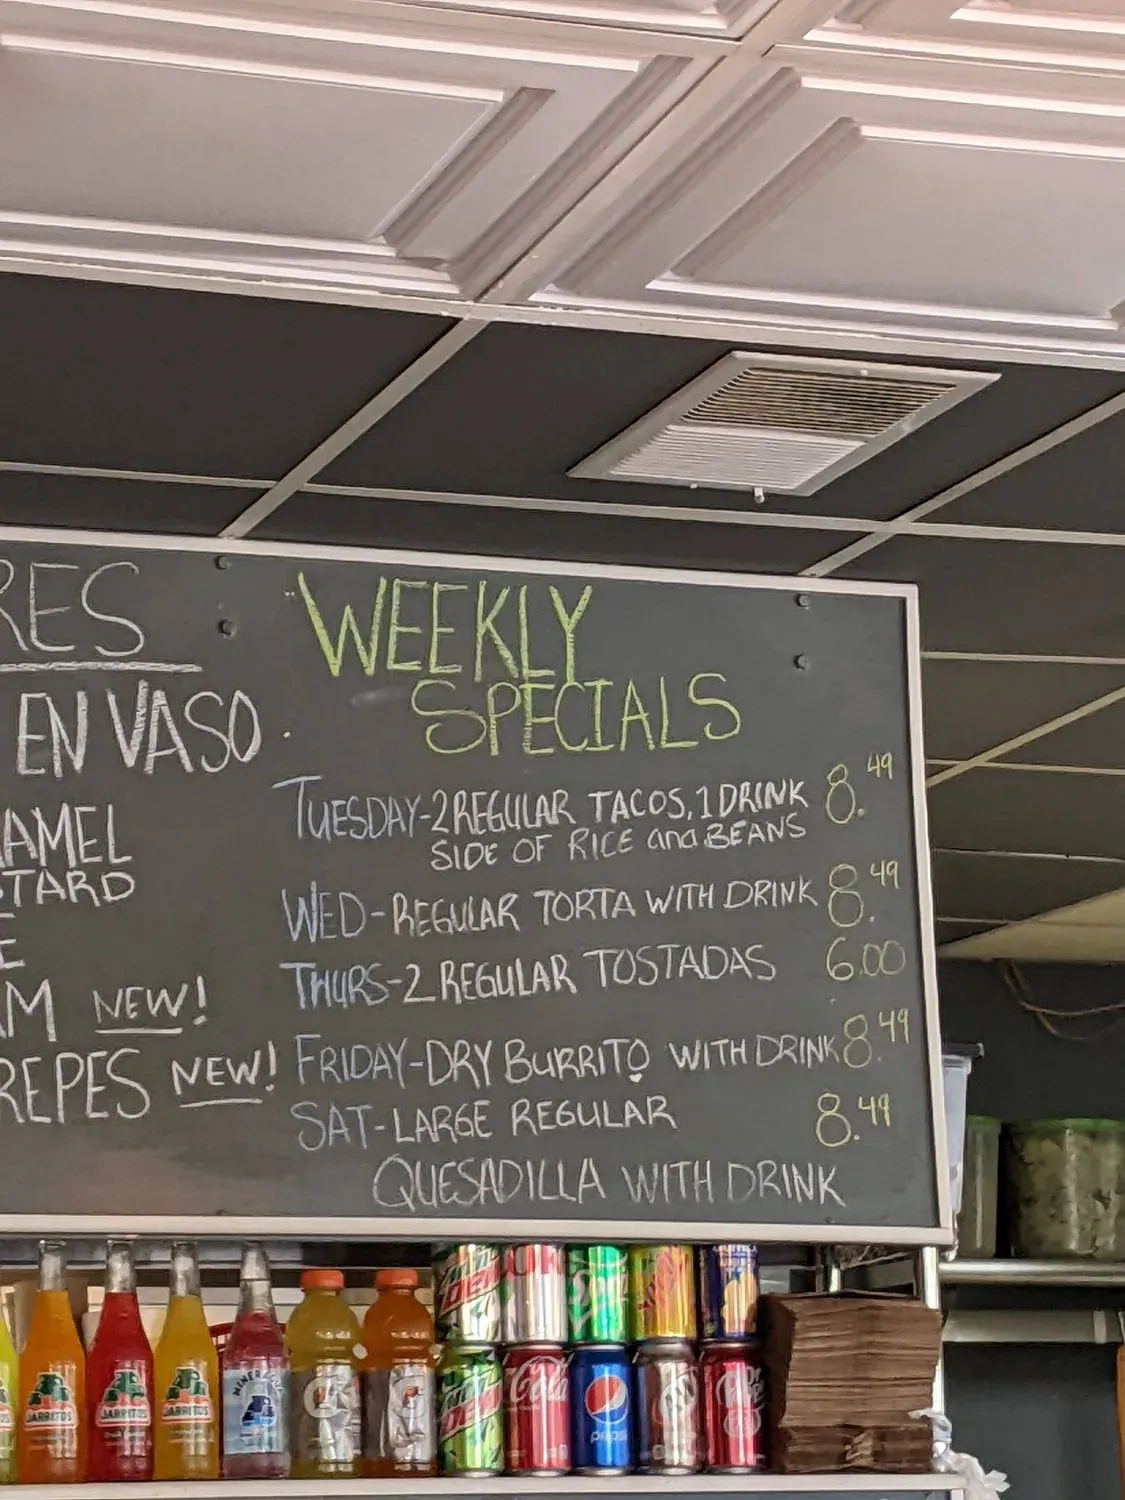 RES
EN VASO
AMEL
STARD
E
AM NEW!
REPES NEW!
WEEKLY
SPECIALS
TUESDAY-2 REGULAR TACOS, 1 DRINK 8.49
SIDE OF RICE and BEANS
WED-REGULAR TORTA WITH DRINK 8.49
THURS-2 REGULAR TOSTADAS 6.00
FRIDAY-DRY BURRITO WITH DRINK 8.49
SAT-LARGE REGULAR 8.49
QUESADILLA WITH DRINK
JARRITOS
JARRITOS
JARRITOS
G
G
Coke
pepsi